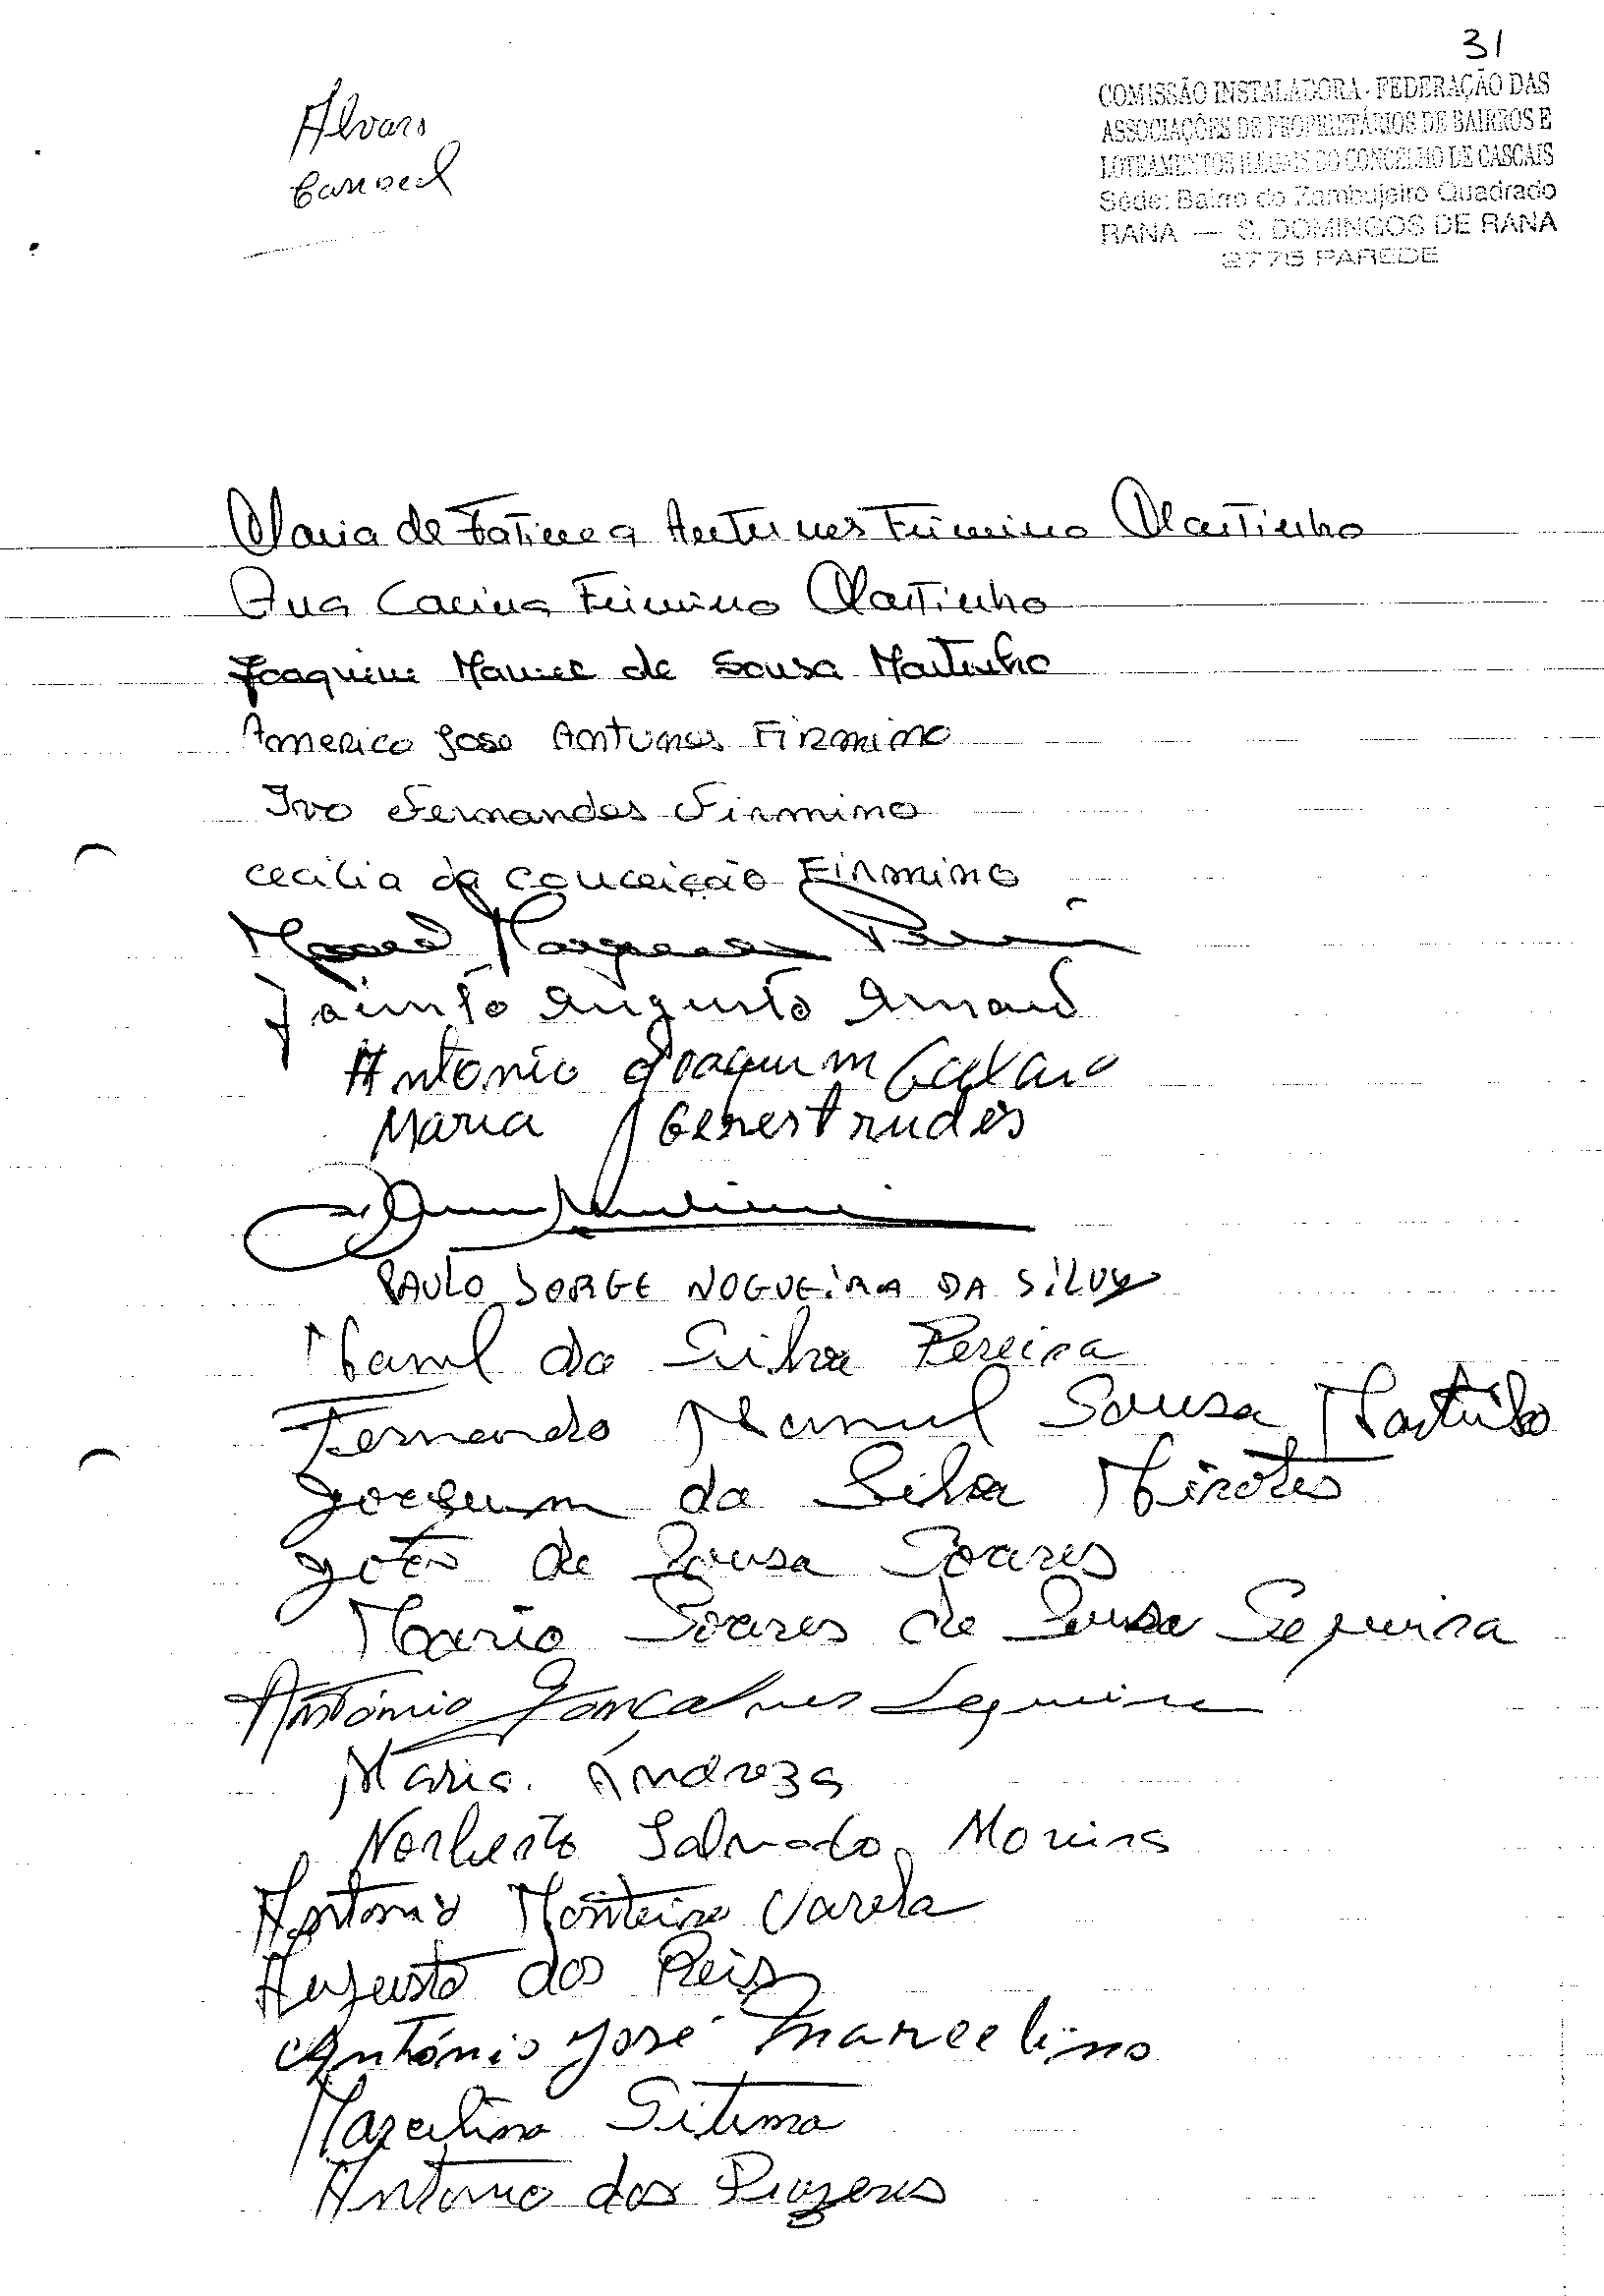 31
Alvaro
COMISSÃO INSTALADORA - FEDERAÇÃO DAS
ASSOCIAÇÕES DE PROPRIETÁRIOS DE BAIRROS E
LOTEAMENTOS ILEGAIS DO CONCELHO DE CASCAIS
Séde: Bairro do Zambujeiro Quadrado
RANA — S. DOMINGOS DE RANA
2775 PAREDE
Maria de Fatima Antunes Firmino Martinho
Ana Carina Firmino Martinho
Joaquim Manuel de Sousa Martinho
Americo Jose Antunes Firmino
Ivo Fernandes Firmino
Cecilia da Conceição Firmino
Manuel Marques Pereira
Jacinto Augusto Arnaud
Antonio Joaquim
Maria Gerestrudes
PAULO JORGE NOGUEIRA DA SILVA
Manuel da Silva Pereira
Fernando Manuel Sousa Martinho
Joaquim da Silva
João de Sousa Soares
Maria Soares de Sousa Sequeira
António Gonçalves Sequeira
Maria Andreza
Norberto Salvado Moreira
Antonio Monteiro Varela
Augusto dos Reis
António José Marcelino
Marcelina
Antonio dos Prazeres